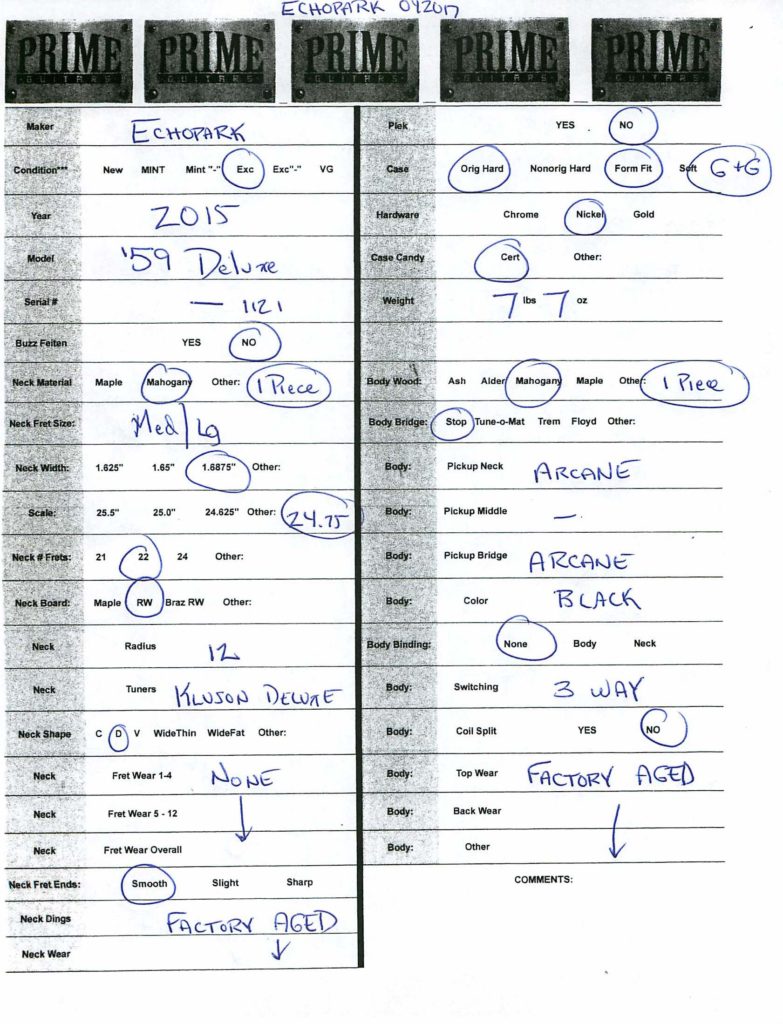 ECHOPARK 042017
PRIME GUITARS PRIME GUITARS PRIME GUITARS PRIME GUITARS PRIME GUITARS
Maker ECHOPARK
Condition*** New MINT Mint "-" Exc Exc"-" VG
Year 2015
Model '59 Deluxe
Serial # — 1121
Buzz Feiten YES NO
Neck Material Maple Mahogany Other: 1 Piece
Neck Fret Size: Med/Lg
Neck Width: 1.625" 1.65" 1.6875" Other:
Scale: 25.5" 25.0" 24.625" Other: 24.75
Neck # Frets: 21 22 24 Other:
Neck Board: Maple RW Braz RW Other:
Neck Radius 12
Neck Tuners KLUSON DELUXE
Neck Shape C D V WideThin WideFat Other:
Neck Fret Wear 1-4 NONE
Neck Fret Wear 5 - 12
Neck Fret Wear Overall
Neck Fret Ends: Smooth Slight Sharp
Neck Dings FACTORY AGED
Neck Wear
Plek YES NO
Case Orig Hard Nonorig Hard Form Fit Soft G+G
Hardware Chrome Nickel Gold
Case Candy Cert Other:
Weight 7 lbs 7 oz
Body Wood: Ash Alder Mahogany Maple Other: 1 Piece
Body Bridge: Stop Tune-o-Mat Trem Floyd Other:
Body: Pickup Neck ARCANE
Body: Pickup Middle —
Body: Pickup Bridge ARCANE
Body: Color BLACK
Body Binding: None Body Neck
Body: Switching 3 WAY
Body: Coil Split YES NO
Body: Top Wear FACTORY AGED
Body: Back Wear
Body: Other
COMMENTS: